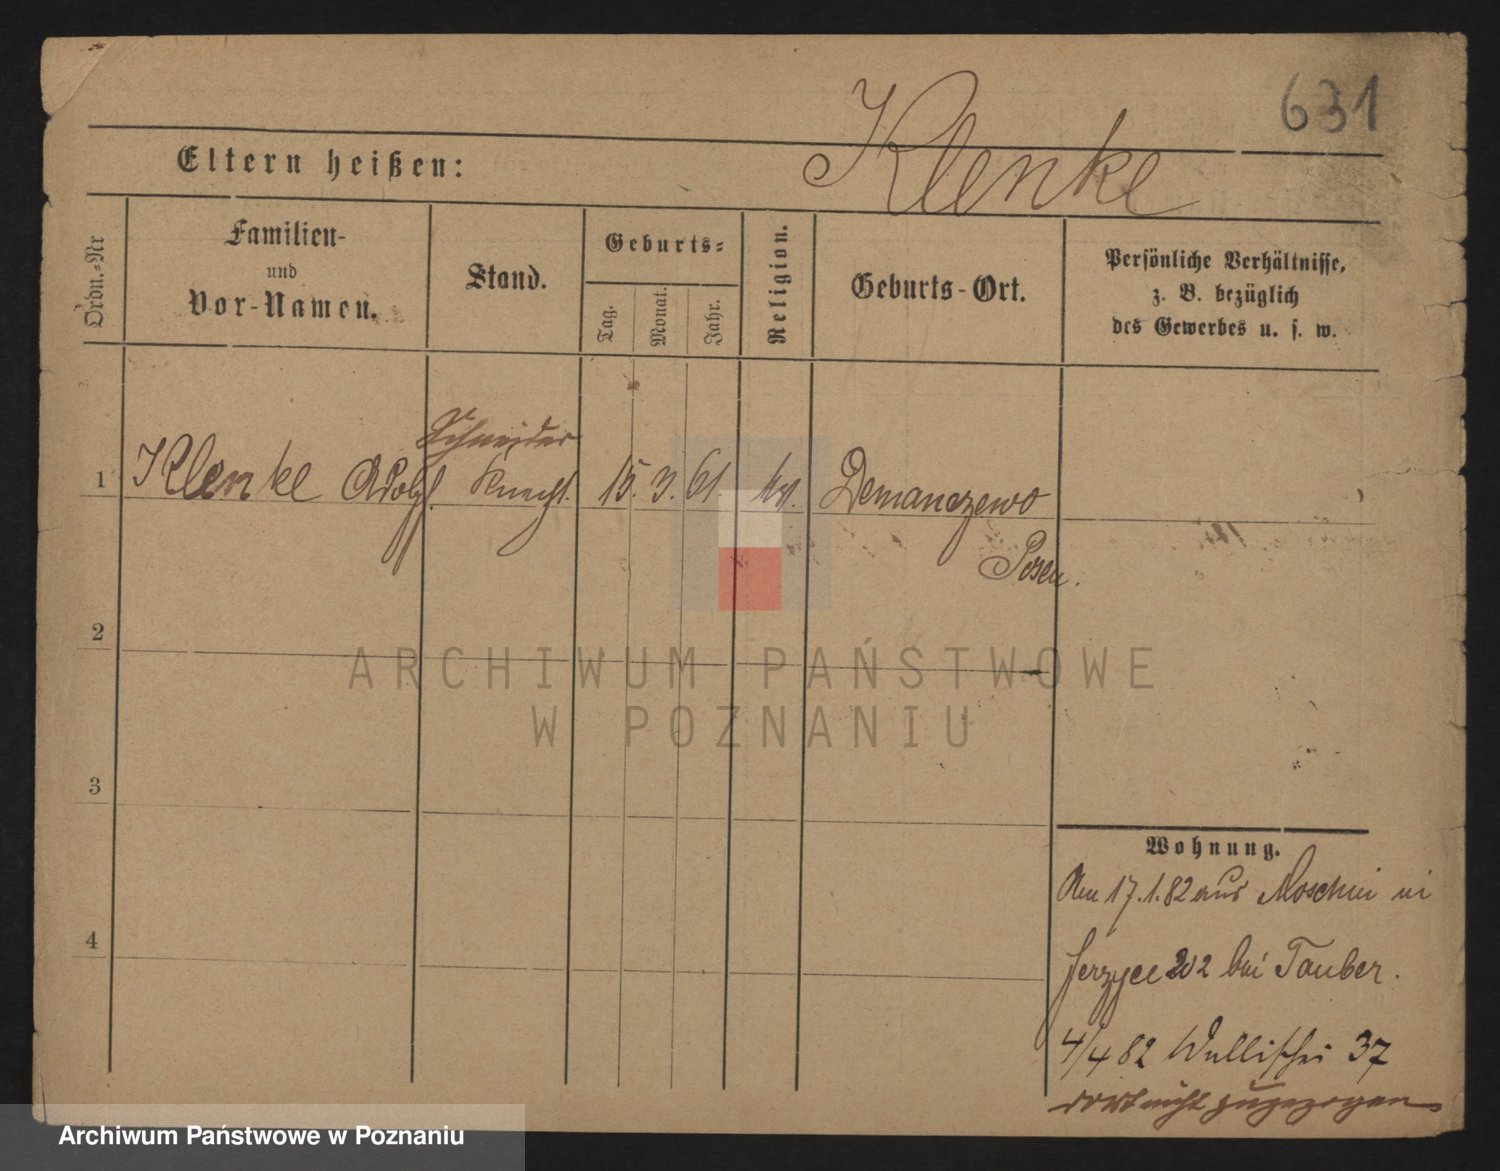 631
Klenke
Eltern heißen:
Ordn.=Nr
Familien-
und
Vor-Namen.
Stand.
Geburts=
Tag.
Monat.
Jahr.
Religion.
Geburts-Ort.
Persönliche Verhältnisse,
z. B. bezüglich
des Gewerbes u. s. w.
Schneider
1 Klenke Adolf. Knecht. 15. 3. 61 Demanczewo
Posen.
2
ARCHIWUM PAŃSTWOWE
W POZNANIU
3
Wohnung.
Am 17.1.82 aus Moschin in
4
Jerzyce 202 bei Tauber.
4/4 82 Wallischei 37
dort nicht zugezogen
Archiwum Państwowe w Poznaniu